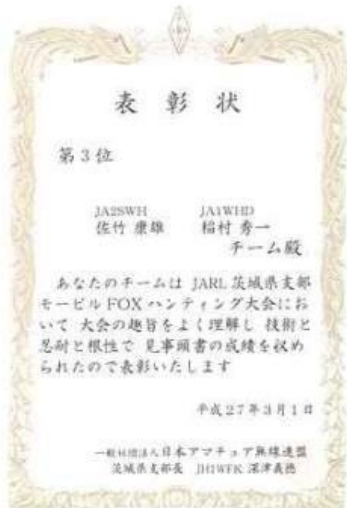 表彰状
第3位
JA2SWH JA1WHD
佐竹 康雄 稲村 秀一
チーム殿
あなたのチームは JARL 茨城県支部
モービル FOX ハンティング大会にお
いて 大会の趣旨をよく理解し 技術と
忍耐と根性で 見事頭書の成績を収め
られたので表彰いたします
平成27年3月1日
一般社団法人日本アマチュア無線連盟
茨城県支部長 JH1WFK 深津義徳